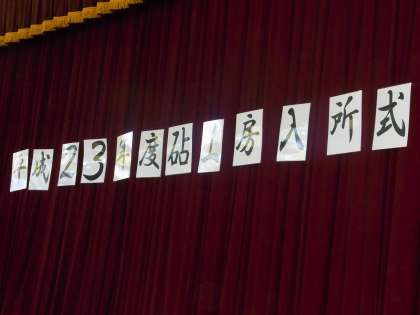 平成23年度砧工房入所式